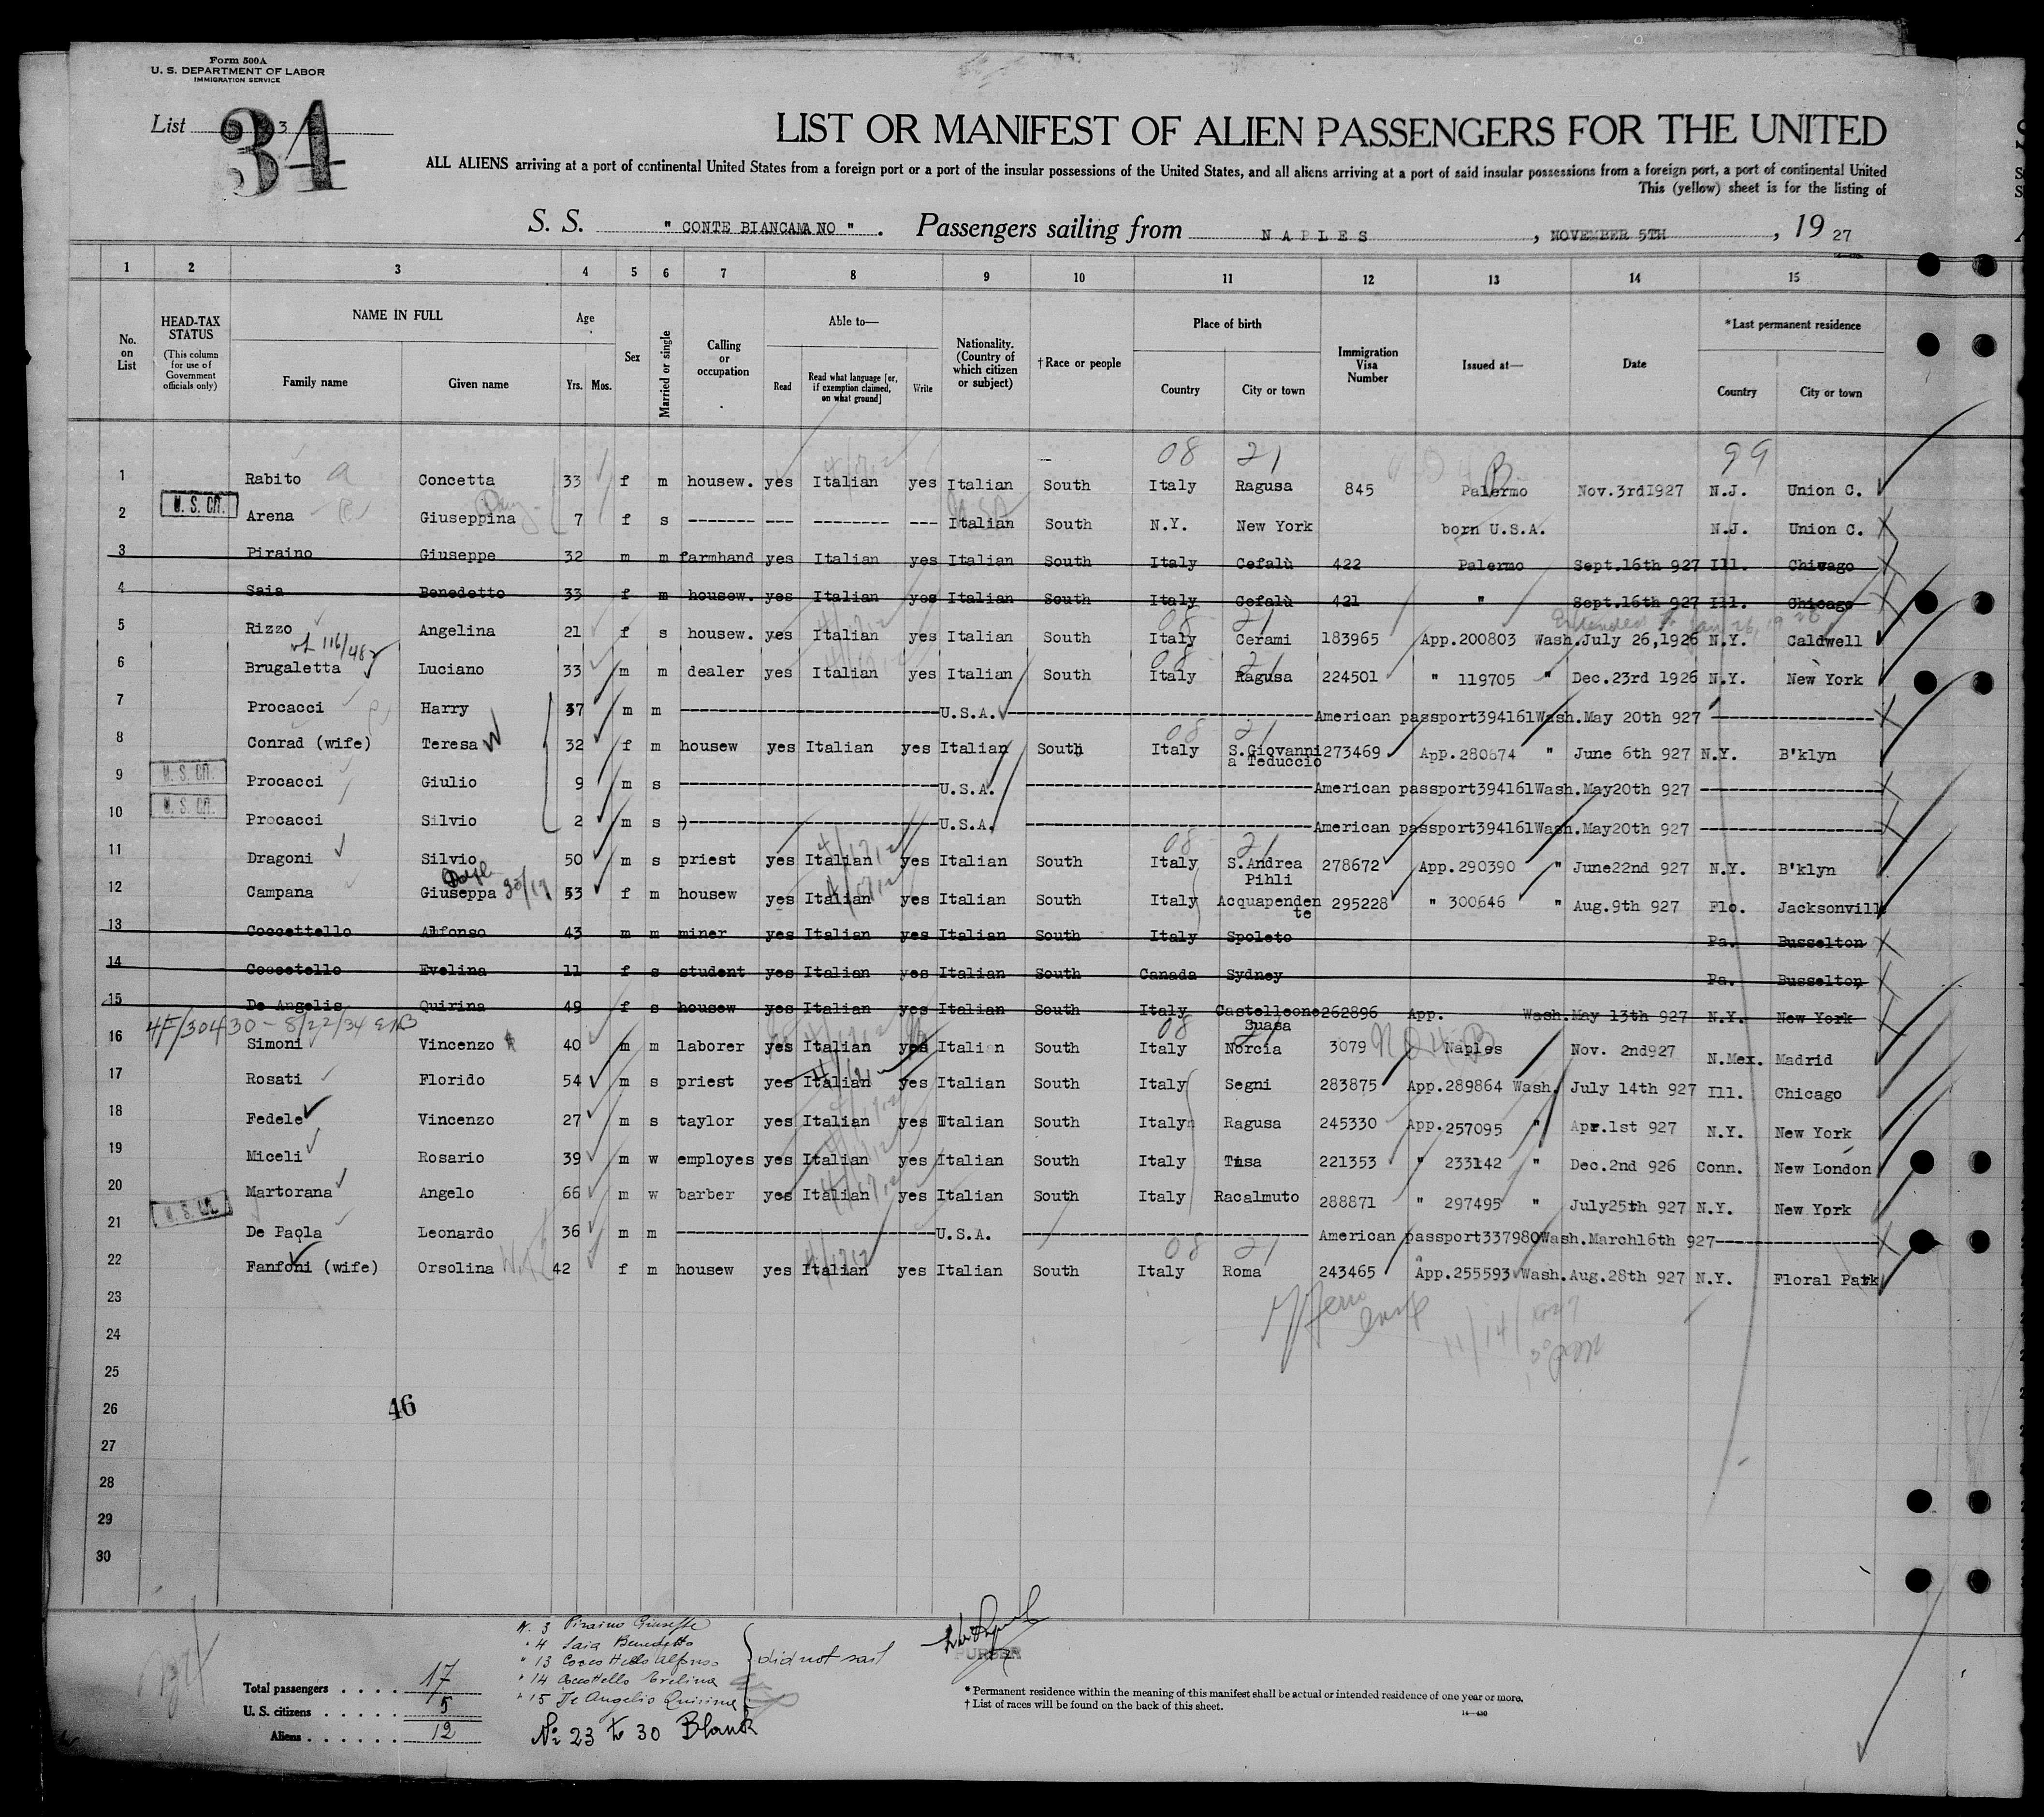 Form 500A
U. S. DEPARTMENT OF LABOR
IMMIGRATION SERVICE
List 3
34
LIST OR MANIFEST OF ALIEN PASSENGERS FOR THE UNITED
ALL ALIENS arriving at a port of continental United States from a foreign port or a port of the insular possessions of the United States, and all aliens arriving at a port of said insular possessions from a foreign port, a port of continental United
This (yellow) sheet is for the listing of
S. S. " CONTE BIANCAMANO " . Passengers sailing from NAPLES , NOVEMBER 5TH , 19 27
1 2 3 4 5 6 7 8 9 10 11 12 13 14 15
No. on List
HEAD-TAX STATUS (This column for use of Government officials only)
NAME IN FULL
Family name Given name
Age
Yrs. Mos.
Sex
Married or single
Calling or occupation
Able to—
Read Read what language [or, if exemption claimed, on what ground] Write
Nationality. (Country of which citizen or subject)
†Race or people
Place of birth
Country City or town
Immigration Visa Number
Issued at—
Date
*Last permanent residence
Country City or town
08 21 B 99
1 Rabito Concetta 33 f m housew. yes Italian yes Italian South Italy Ragusa 845 Palermo Nov.3rd1927 N.J. Union C.
U. S. CIT.
2 Arena Giuseppina 7 f s ------- --- -------- --- Italian South N.Y. New York born U.S.A. N.J. Union C.
3 Piraino Giuseppe 32 m m farmhand yes Italian yes Italian South Italy Cefalù 422 Palermo Sept.16th 927 Ill. Chicago
4 Saia Benedetto 33 f m housew. yes Italian yes Italian South Italy Cefalù 421 " Sept.16th 927 Ill. Chicago
08 21 Extended to Jan 26, 1928
5 Rizzo Angelina 21 f s housew. yes Italian yes Italian South Italy Cerami 183965 App.200803 Wash.July 26,1926 N.Y. Caldwell
08 21
6 Brugaletta Luciano 33 m m dealer yes Italian yes Italian South Italy Ragusa 224501 " 119705 " Dec.23rd 1926 N.Y. New York
7 Procacci Harry 37 m m U.S.A. American passport394161Wash.May 20th 927
08 21
8 Conrad (wife) Teresa 32 f m housew yes Italian yes Italian South Italy S.Giovanni a Teduccio 273469 App.280674 " June 6th 927 N.Y. B'klyn
U. S. CIT.
9 Procacci Giulio 9 m s U.S.A. American passport394161Wash.May20th 927
U. S. CIT.
10 Procacci Silvio 2 m s ) U.S.A. American passport394161Wash.May20th 927
08 21
11 Dragoni Silvio 50 m s priest yes Italian yes Italian South Italy S.Andrea Pihli 278672 App.290390 " June22nd 927 N.Y. B'klyn
12 Campana Giuseppa 53 f m housew yes Italian yes Italian South Italy Acquapendente 295228 " 300646 " Aug.9th 927 Flo. Jacksonvill
13 Coccettello Alfonso 43 m m miner yes Italian yes Italian South Italy Spoleto Pa. Busselton
14 Coccetello Evelina 11 f s student yes Italian yes Italian South Canada Sydney Pa. Busselton
15 De Angelis Quirina 49 f s housew yes Italian yes Italian South Italy Castelleone Suasa 262896 App. Wash.May 13th 927 N.Y. New York
4F/30430 - 8/22/34
08 21
16 Simoni Vincenzo 40 m m laborer yes Italian yes Italien South Italy Norcia 3079 Naples Nov. 2nd927 N.Mex. Madrid
17 Rosati Florido 54 m s priest yes Italian yes Italian South Italy Segni 283875 App.289864 Wash. July 14th 927 Ill. Chicago
18 Fedele Vincenzo 27 m s taylor yes Italian yes Italian South Italy Ragusa 245330 App.257095 " Apr.1st 927 N.Y. New York
19 Miceli Rosario 39 m w employes yes Italian yes Italian South Italy Tusa 221353 " 233142 " Dec.2nd 926 Conn. New London
20 Martorana Angelo 66 m w barber yes Italian yes Italian South Italy Racalmuto 288871 " 297495 " July25th 927 N.Y. New York
U. S. CIT.
21 De Paola Leonardo 36 m m U.S.A. American passport337980Wash.March16th 927
08 21
22 Fanfoni (wife) Orsolina 42 f m housew yes Italian yes Italian South Italy Roma 243465 App.255593 Wash.Aug.28th 927 N.Y. Floral Park
23
24
25
26
46
27
28
29
30
N. 3 Piraino Giuseppe
" 4 Saia Benedetto
" 13 Coccettello Alfonso
" 14 Coccettello Evelina
" 15 De Angelis Quirina
did not sail
No 23 to 30 Blank
PURSER
Total passengers . . . . 17
U. S. citizens . . . . . 5
Aliens . . . . . . 12
* Permanent residence within the meaning of this manifest shall be actual or intended residence of one year or more.
† List of races will be found on the back of this sheet.
14—430